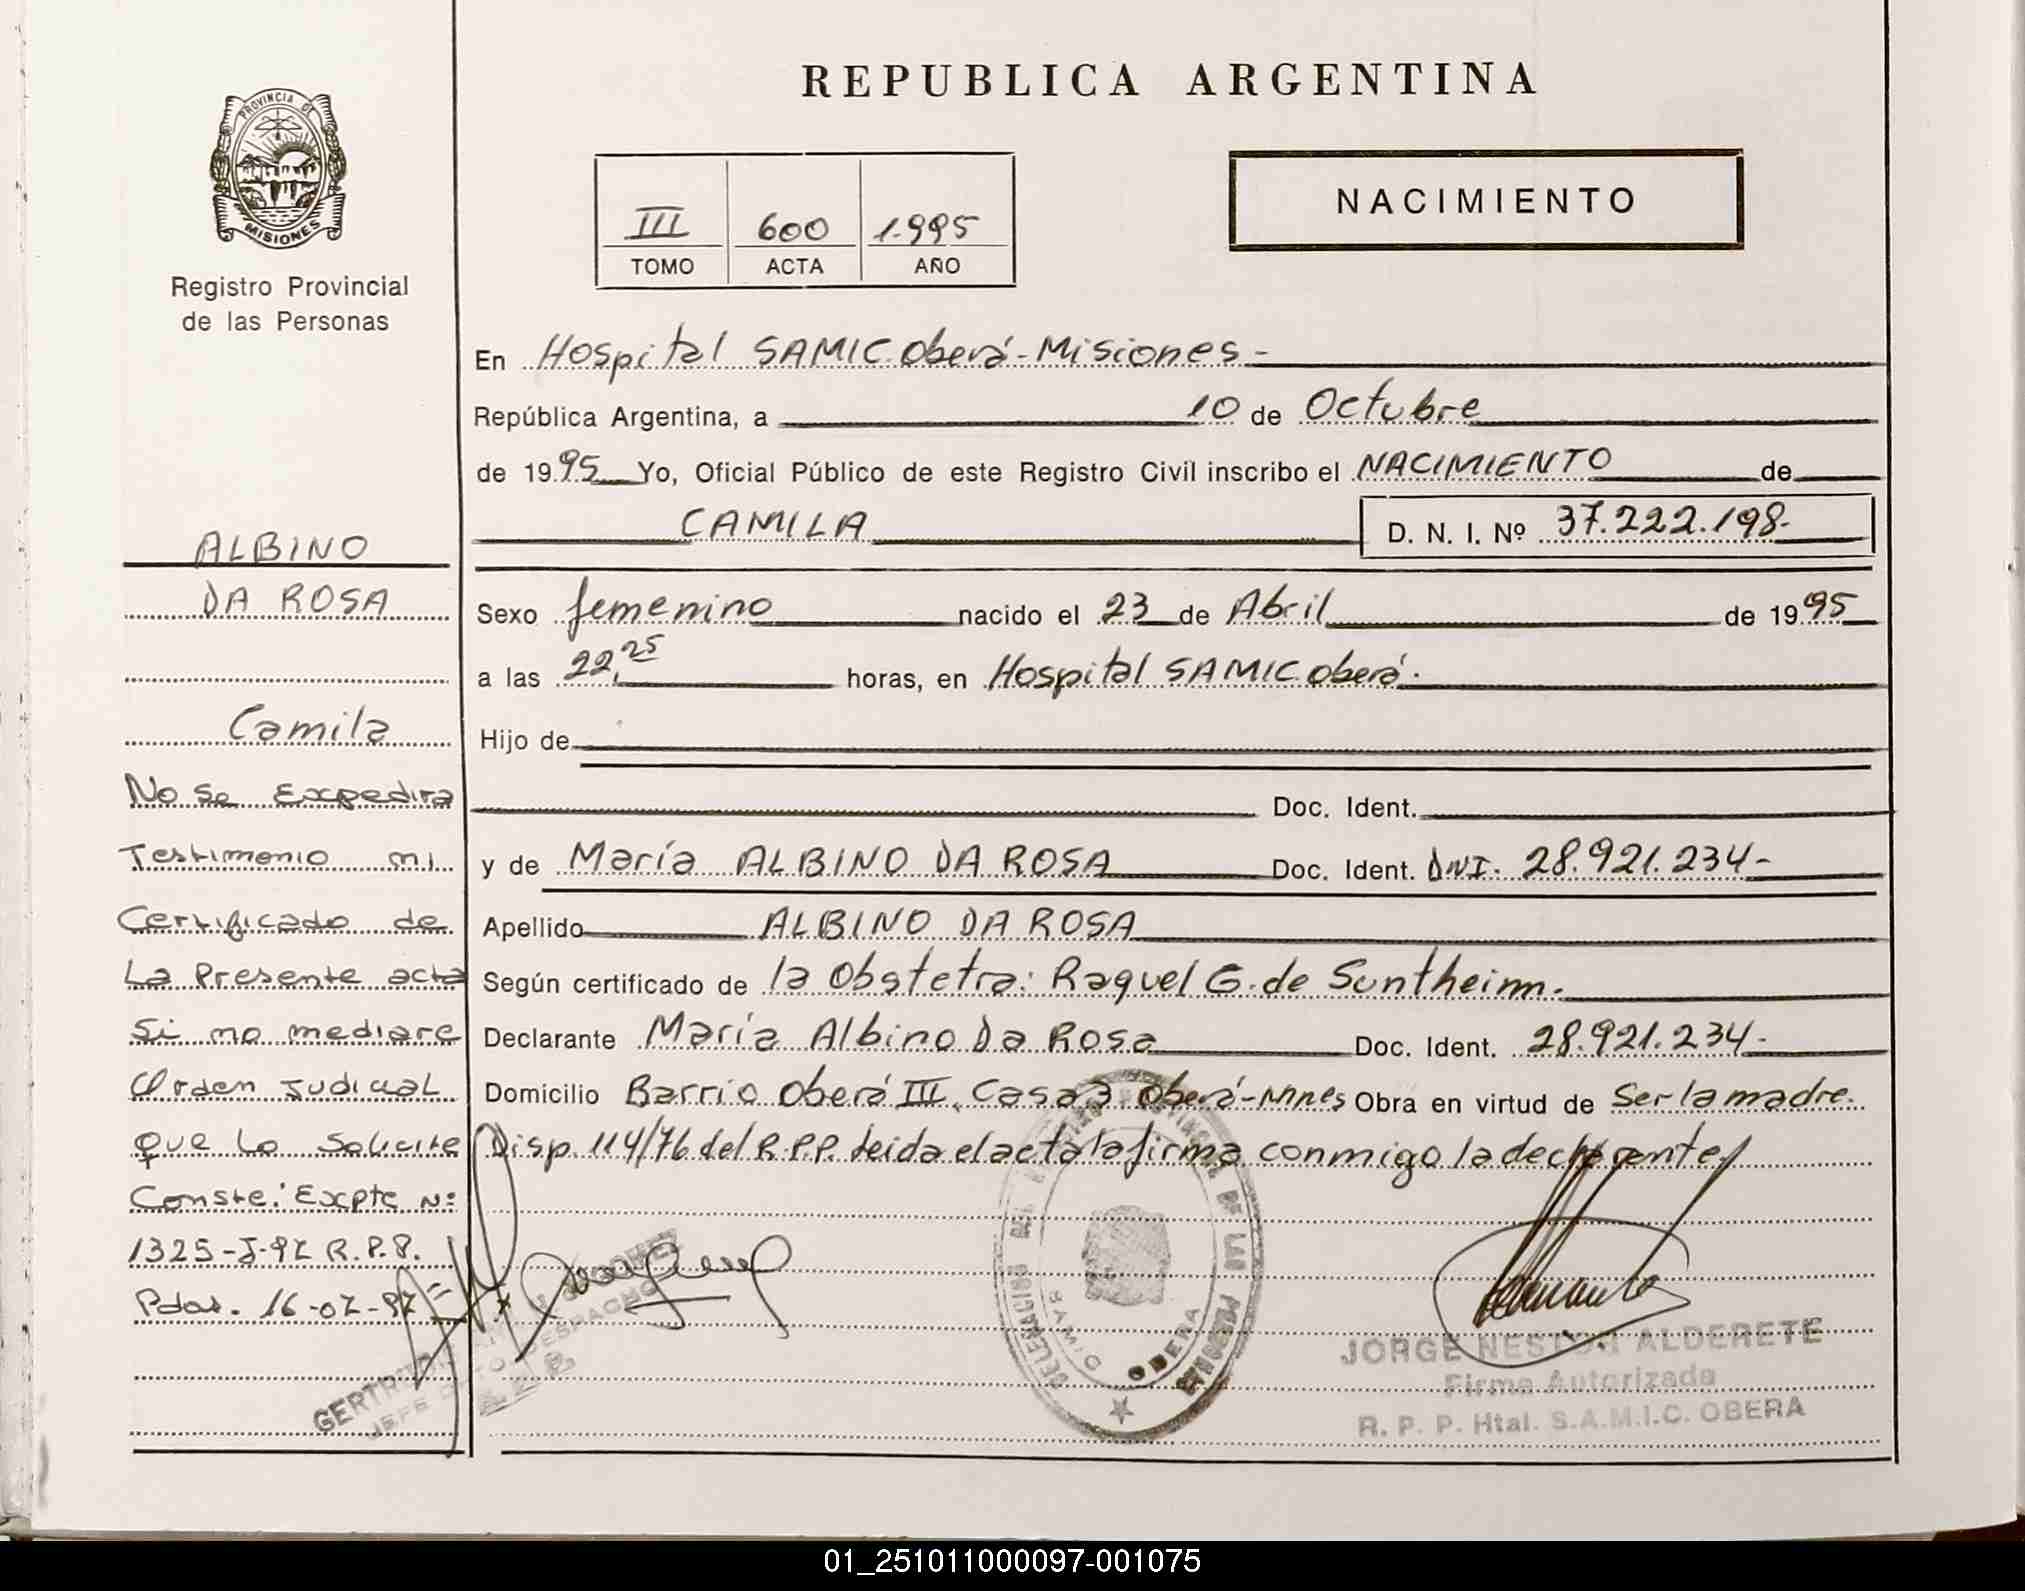 REPUBLICA ARGENTINA
PROVINCIA DE
MISIONES
Registro Provincial
de las Personas
NACIMIENTO
III 600 1.995
TOMO ACTA AÑO
En Hospital SAMIC. Oberá - Misiones -
República Argentina, a 10 de Octubre
de 1995 Yo, Oficial Público de este Registro Civil inscribo el NACIMIENTO de
CAMILA D. N. I. Nº 37.222.198-
Sexo femenino nacido el 23 de Abril de 1995
a las 22,25 horas, en Hospital SAMIC. Oberá.
Hijo de
Doc. Ident.
y de María ALBINO DA ROSA Doc. Ident. DNI. 28.921.234-
Apellido ALBINO DA ROSA
Según certificado de la Obstetra: Raquel G. de Suntheimn.
Declarante María Albino Da Rosa Doc. Ident. 28.921.234-
Domicilio Barrio Oberá III, Casa 3. Oberá-Mnes Obra en virtud de Ser la madre.
Disp. 114/76 del R.P.P. Leida el acta la firma conmigo la declarante
ALBINO
DA ROSA
Camila
No se Expedira
Testimonio ni
Certificado de
La Presente acta
Si no mediare
Orden Judicial
que lo Solicite
Conste: Expte Nº
1325-J-97 R.P.P.
Pdas. 16-07-97=
DELEGACION
SAMIC
OBERA
JORGE NESTOR ALDERETE
Firma Autorizada
R. P. P. Htal. S.A.M.I.C. OBERA
01_251011000097-001075